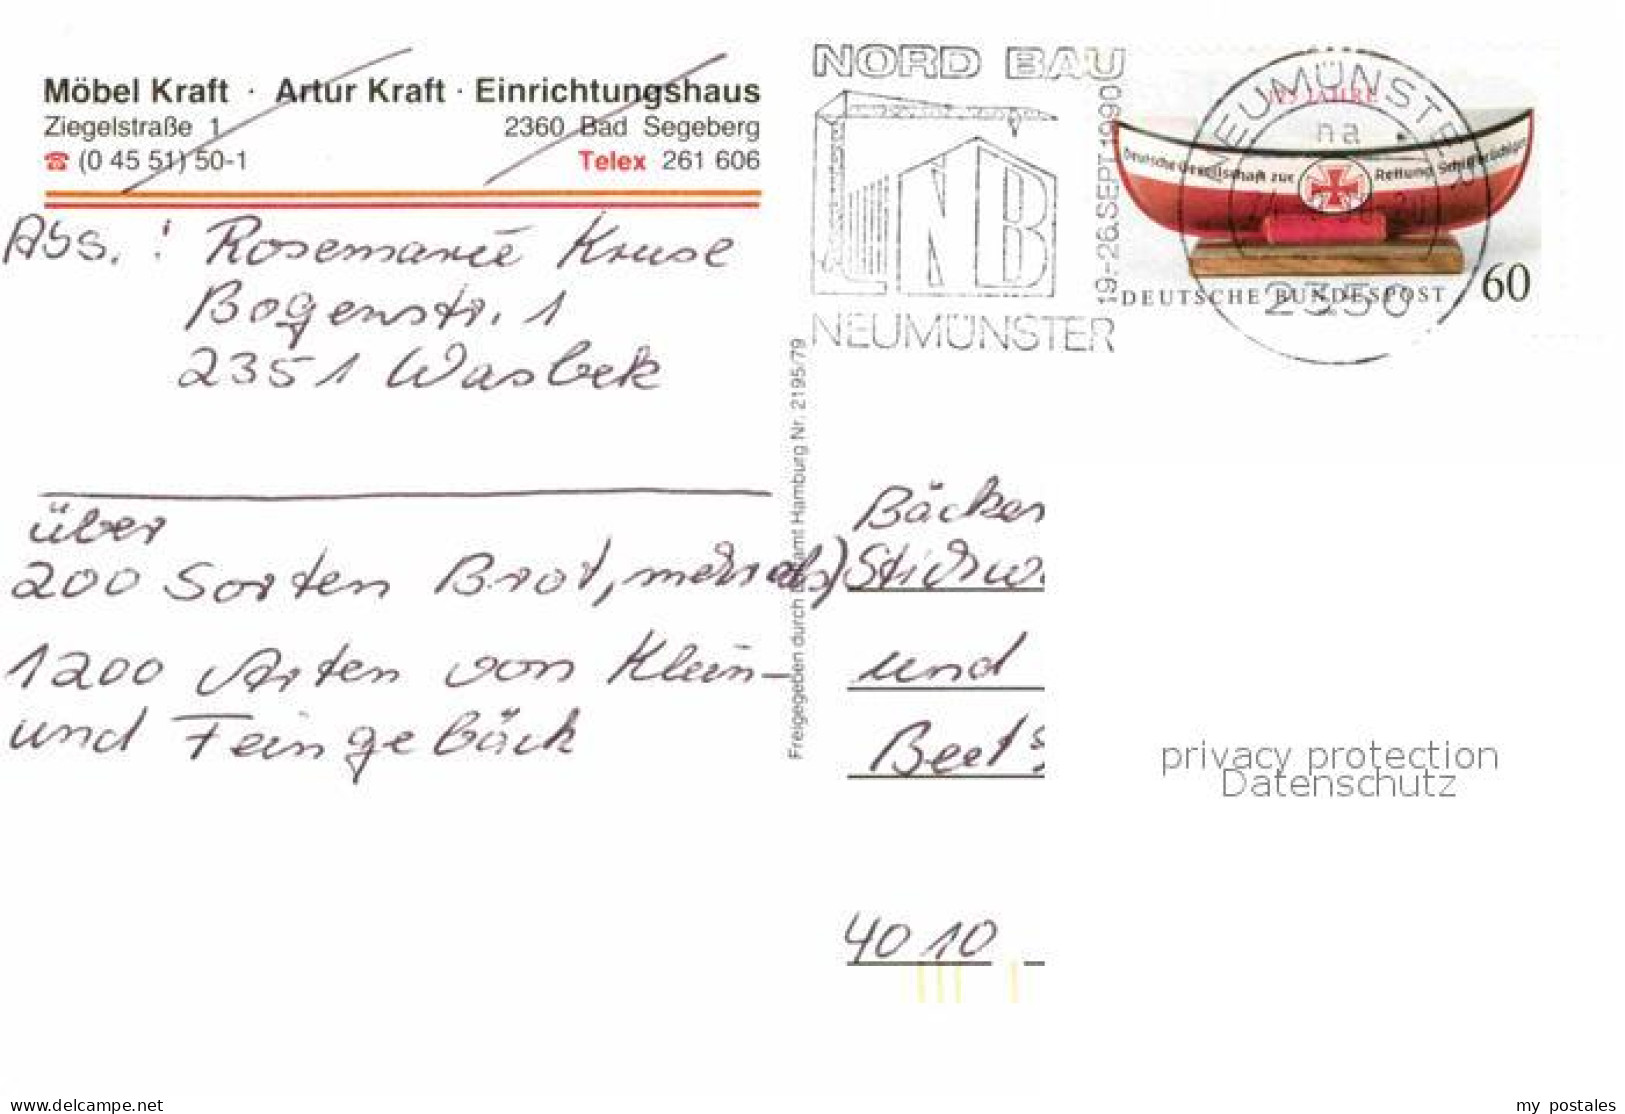 Möbel Kraft · Artur Kraft · Einrichtungshaus
Ziegelstraße 1 2360 Bad Segeberg
☎ (0 45 51) 50-1 Telex 261 606
Abs. : Rosemarie Kruse
Bogenstr. 1
2351 Wasbek
über
200 Sorten Brot,
1200 Arten von Klein-
und Feingebäck
Freigegeben durch Hamburg Nr. 2195/79
NORD BAU
NB
19.-26.SEPT.1990
NEUMÜNSTER
125 JAHRE
Deutsche Gesellschaft zur Rettung Schiffbrüchiger
DEUTSCHE BUNDESPOST 60
NEUMÜNSTER
na
2350
Bäcker
Stichw
und
Beet
4010
privacy protection
Datenschutz
www.delcampe.net
my postales